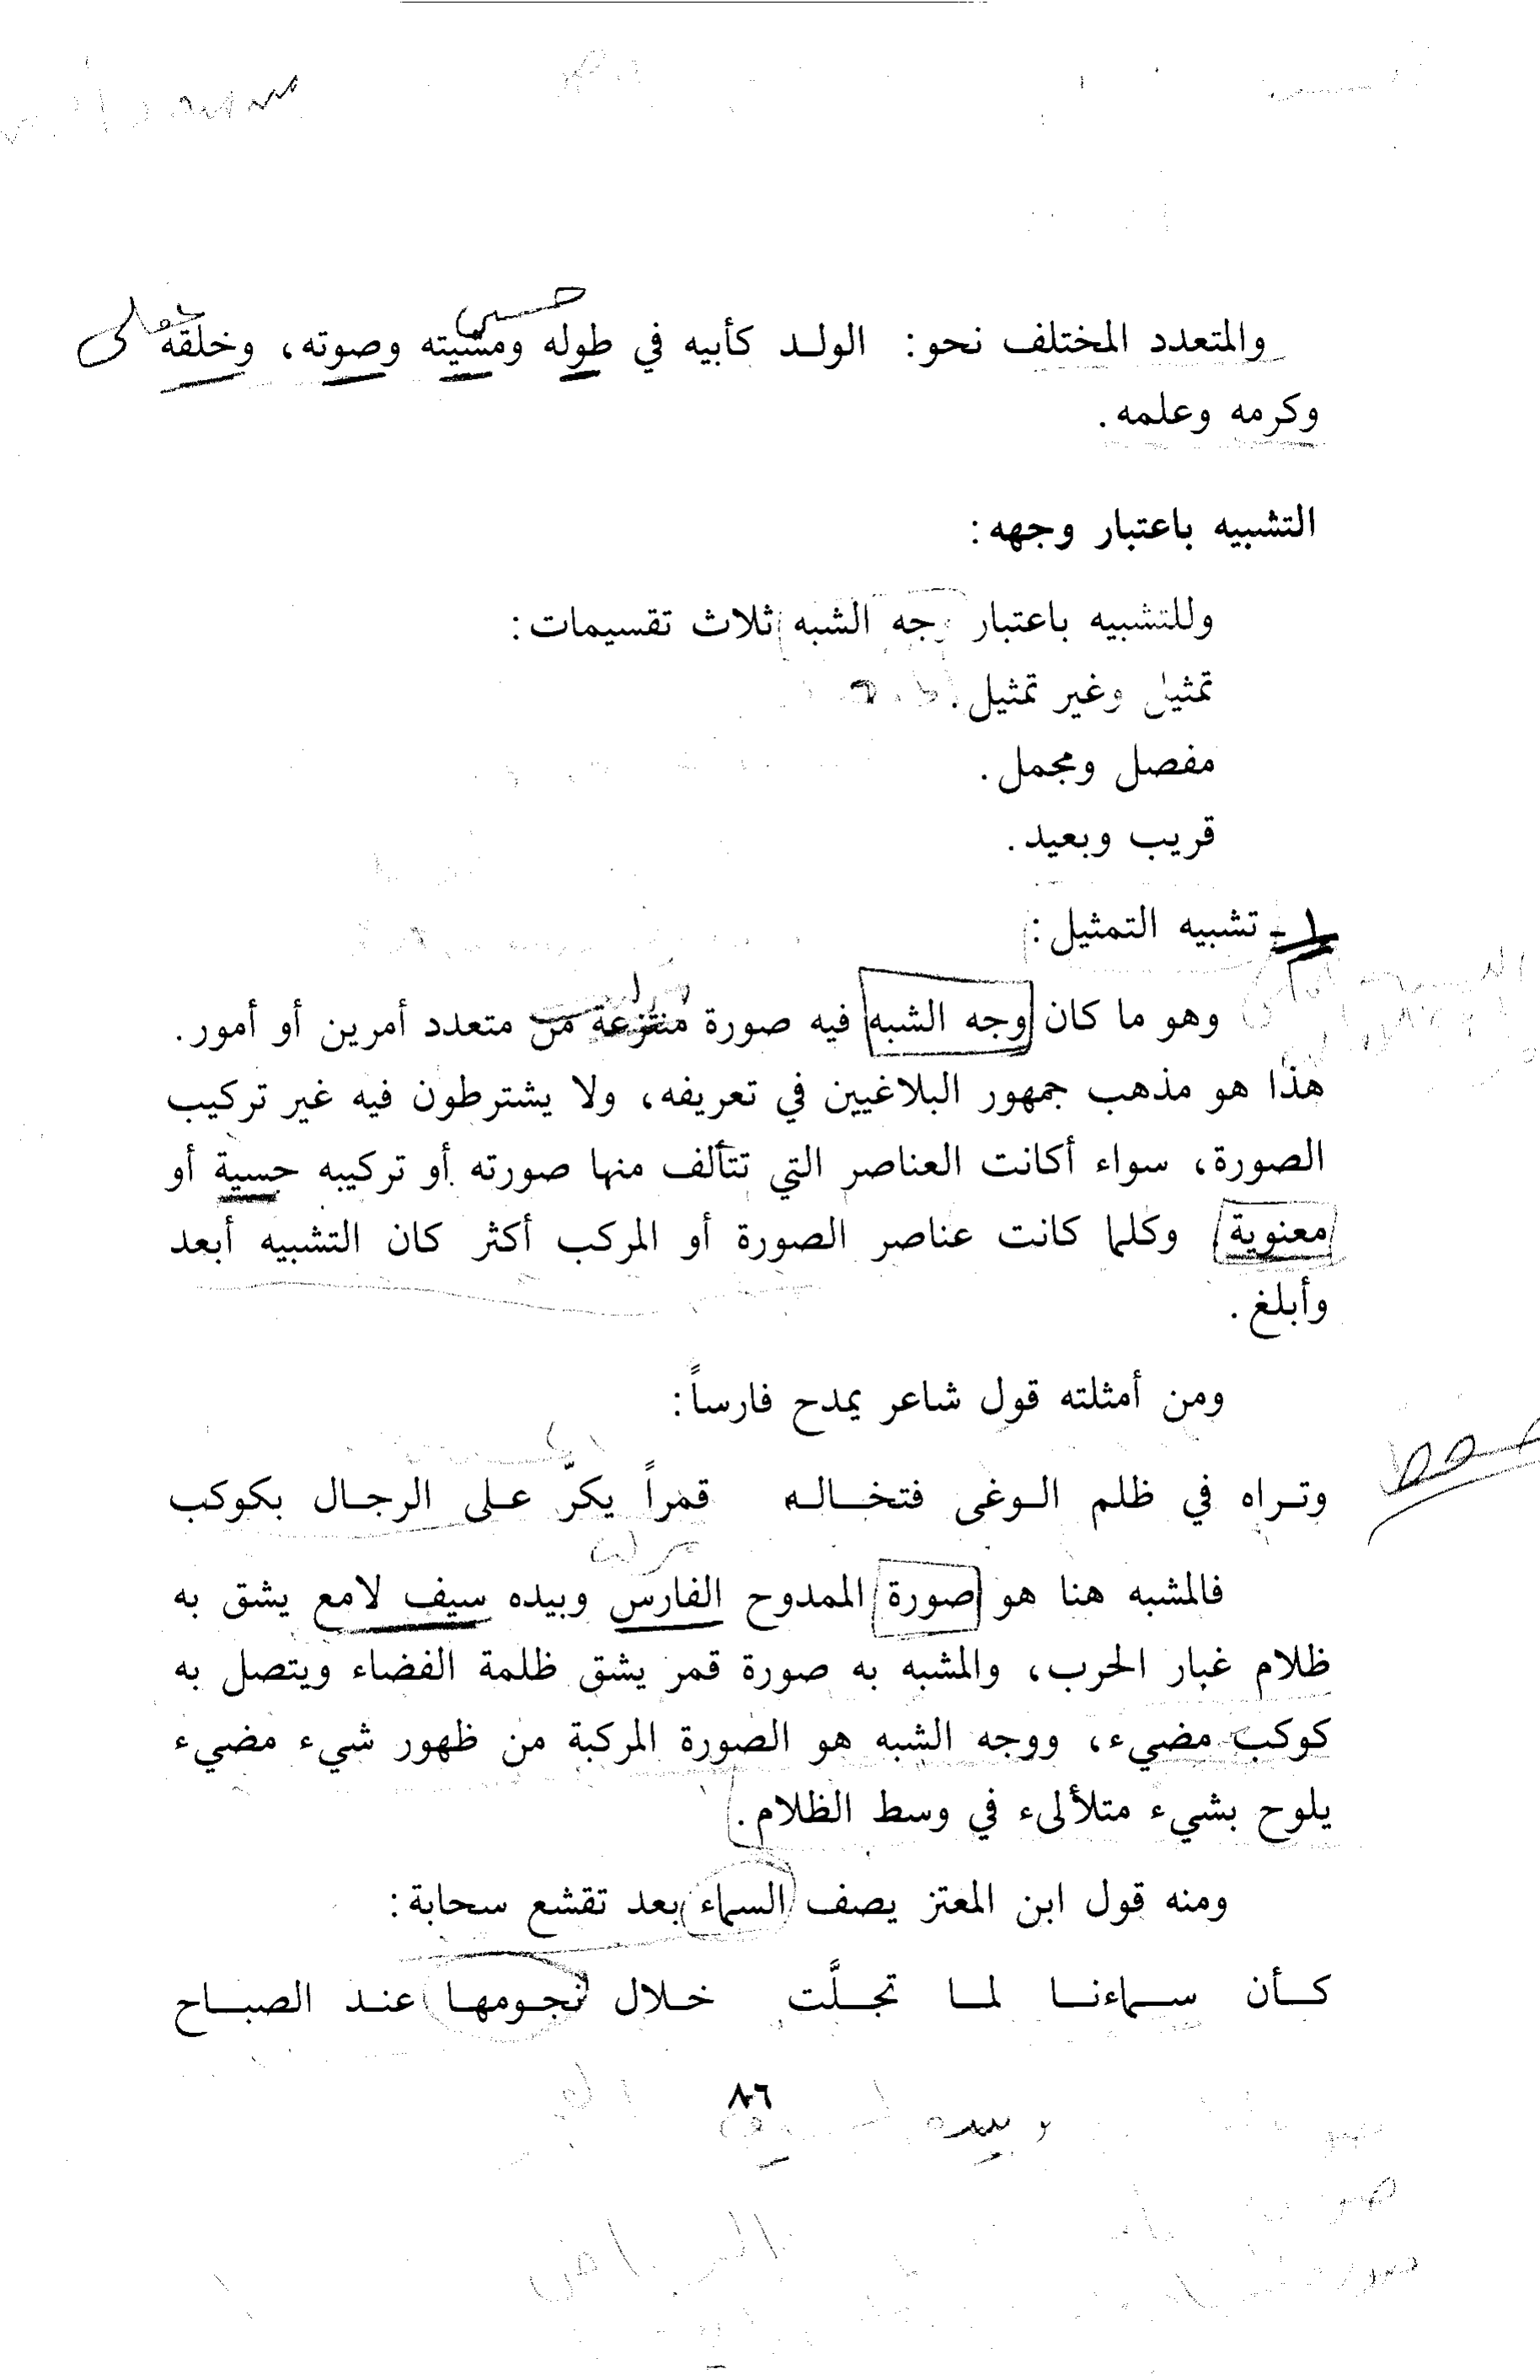 والمتعدد المختلف نحو: الولد كأبيه في طوله ومشيته وصوته، وخلقه
وكرمه وعلمه.
التشبيه باعتبار وجهه:
وللتشبيه باعتبار وجه الشبه ثلاث تقسيمات:
تمثيل وغير تمثيل.
مفصل ومجمل.
قريب وبعيد.
١ - تشبيه التمثيل:
وهو ما كان وجه الشبه فيه صورة منتزعة من متعدد أمرين أو أمور.
هذا هو مذهب جمهور البلاغيين في تعريفه، ولا يشترطون فيه غير تركيب
الصورة، سواء أكانت العناصر التي تتألف منها صورته أو تركيبه حسية أو
معنوية وكلما كانت عناصر الصورة أو المركب أكثر كان التشبيه أبعد
وأبلغ.
ومن أمثلته قول شاعر يمدح فارساً:
وتراه في ظلم الوغى فتخاله قمراً يكرّ على الرجال بكوكب
فالمشبه هنا هو صورة الممدوح الفارس وبيده سيف لامع يشق به
ظلام غبار الحرب، والمشبه به صورة قمر يشق ظلمة الفضاء ويتصل به
كوكب مضيء، ووجه الشبه هو الصورة المركبة من ظهور شيء مضيء
يلوح بشيء متلألىء في وسط الظلام.
ومنه قول ابن المعتز يصف السماء بعد تقشع سحابة:
كأن سماءنا لما تجلَّت خلال نجومها عند الصباح
٨٦